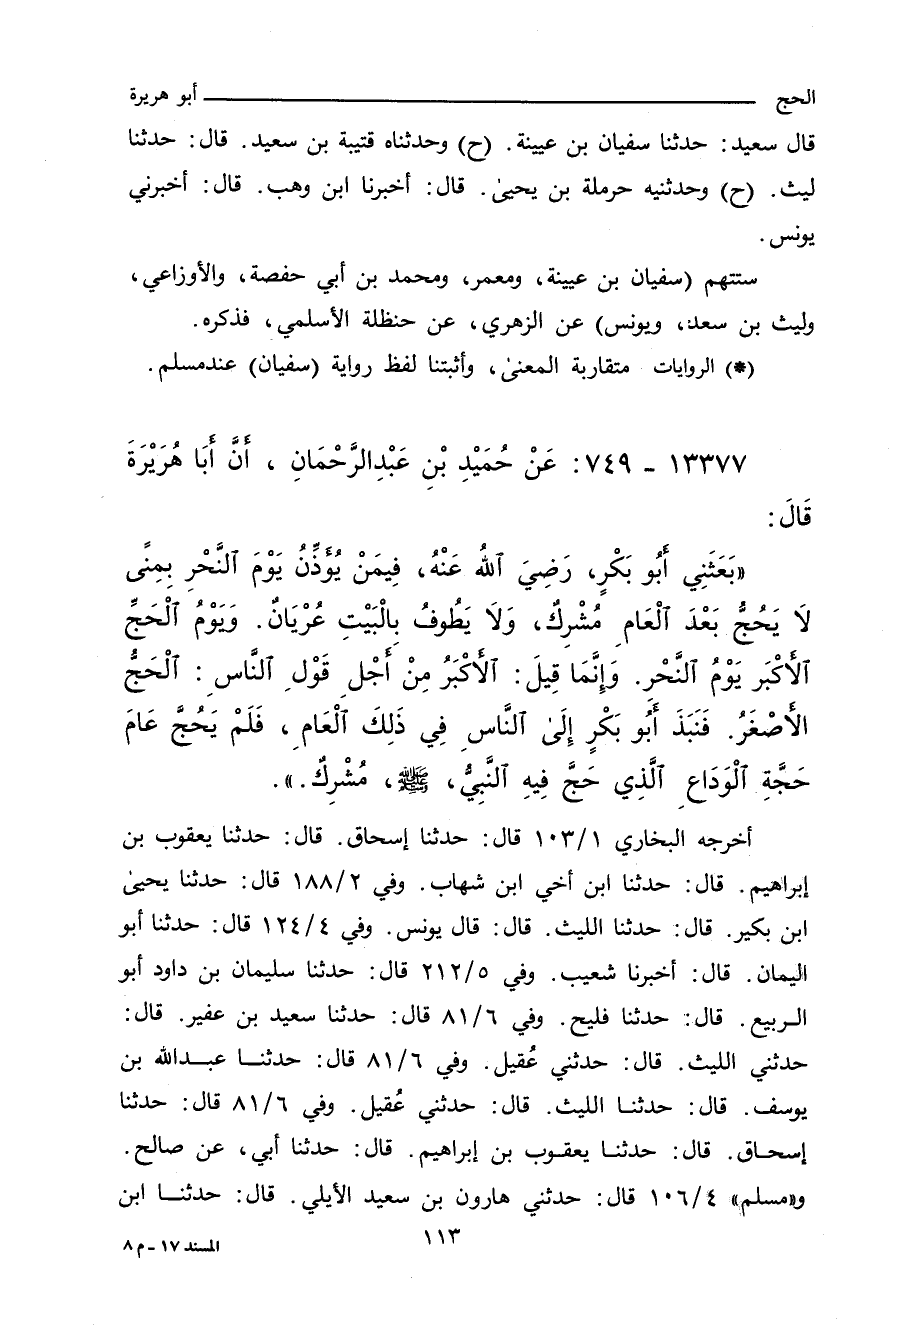 الحج ــــــــــــــــــــ أبو هريرة
قال سعيد: حدثنا سفيان بن عيينة. (ح) وحدثناه قتيبة بن سعيد. قال: حدثنا
ليث. (ح) وحدثنيه حرملة بن يحيىٰ. قال: أخبرنا ابن وهب. قال: أخبرني
يونس.
ستتهم (سفيان بن عيينة، ومعمر، ومحمد بن أبي حفصة، والأوزاعي،
وليث بن سعد، ويونس) عن الزهري، عن حنظلة الأسلمي، فذكره.
(*) الروايات متقاربة المعنىٰ، وأثبتنا لفظ رواية (سفيان) عندمسلم.
١٣٣٧٧ - ٧٤٩: عَنْ حُمَيْدِ بْنِ عَبْدِالرَّحْمَانِ، أَنَّ أَبَا هُرَيْرَةَ
قَالَ:
«بَعَثَنِي أَبُو بَكْرٍ، رَضِيَ ٱللَّهُ عَنْهُ، فِيمَنْ يُؤَذِّنُ يَوْمَ ٱلنَّحْرِ بِمِنًى
لَا يَحُجُّ بَعْدَ ٱلْعَامِ مُشْرِكٌ، وَلَا يَطُوفُ بِالْبَيْتِ عُرْيَانٌ. وَيَوْمُ ٱلْحَجِّ
ٱلْأَكْبَرِ يَوْمُ ٱلنَّحْرِ. وَإِنَّمَا قِيلَ: ٱلْأَكْبَرُ مِنْ أَجْلِ قَوْلِ ٱلنَّاسِ: ٱلْحَجُّ
الأَصْغَرُ. فَنَبَذَ أَبُو بَكْرٍ إِلَىٰ ٱلنَّاسِ فِي ذَلِكَ ٱلْعَامِ، فَلَمْ يَحُجَّ عَامَ
حَجَّةِ ٱلْوَدَاعِ ٱلَّذِي حَجَّ فِيهِ ٱلنَّبِيُّ، ﷺ، مُشْرِكٌ.».
أخرجه البخاري ١٠٣/١ قال: حدثنا إسحاق. قال: حدثنا يعقوب بن
إبراهيم. قال: حدثنا ابن أخي ابن شهاب. وفي ١٨٨/٢ قال: حدثنا يحيىٰ
ابن بكير. قال: حدثنا الليث. قال: قال يونس. وفي ١٢٤/٤ قال: حدثنا أبو
اليمان. قال: أخبرنا شعيب. وفي ٢١٢/٥ قال: حدثنا سليمان بن داود أبو
الربيع. قال: حدثنا فليح. وفي ٨١/٦ قال: حدثنا سعيد بن عفير. قال:
حدثني الليث. قال: حدثني عُقيل. وفي ٨١/٦ قال: حدثنا عبدالله بن
يوسف. قال: حدثنا الليث. قال: حدثني عُقيل. وفي ٨١/٦ قال: حدثنا
إسحاق. قال: حدثنا يعقوب بن إبراهيم. قال: حدثنا أبي، عن صالح.
و«مسلم» ١٠٦/٤ قال: حدثني هارون بن سعيد الأيلي. قال: حدثنا ابن
١١٣
المسند ١٧ - م ٨